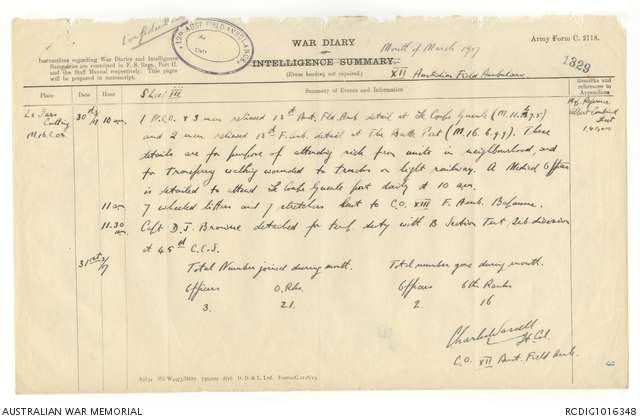 Confidential
12th AUST. FIELD AMBULANCE
Date
WAR DIARY
or
INTELLIGENCE SUMMARY.
(Erase heading not required.)
Month of March 1917
XII Australian Field Ambulance
Army Form C. 2118.
1329
Instructions regarding War Diaries and Intelligence
Summaries are contained in F. S. Regs., Part II.
and the Staff Manual respectively. Title pages
will be prepared in manuscript.
Place Date Hour Summary of Events and Information Remarks and references to Appendices
Sheet III
Le Sars
Cutting
30th
10 am
1 N.C.O. & 3 men relieved 13th Aust. Fld. Amb. detail at
and 2 men relieved 13th F. Amb. detail at The Butte Post (M.16.b.9.9). These
details are for purpose of attending sick from units in neighbourhood, and
for transferring walking wounded to trucks on light railway. A Medical Officer
is detailed to attend post daily at 10 am.
11 am 7 wheeled litters and 7 stretchers sent to C.O. XIII F. Amb. Bapaume.
11.30 am Capt D. J. Browne detached for temp. duty with B Section Tent Sub-division
at 45th C.C.S.
31st
Total Number joined during month. Total number gone during month.
Officers O.Rks. Officers Oth Ranks
3. 21. 2 16
Ref. Bapaume
Albert Combined
Sheet
Lt Col.
C.O. XII Aust. Field Amb.
D. D. & L., Ltd.
AUSTRALIAN WAR MEMORIAL
RCDIG1016348